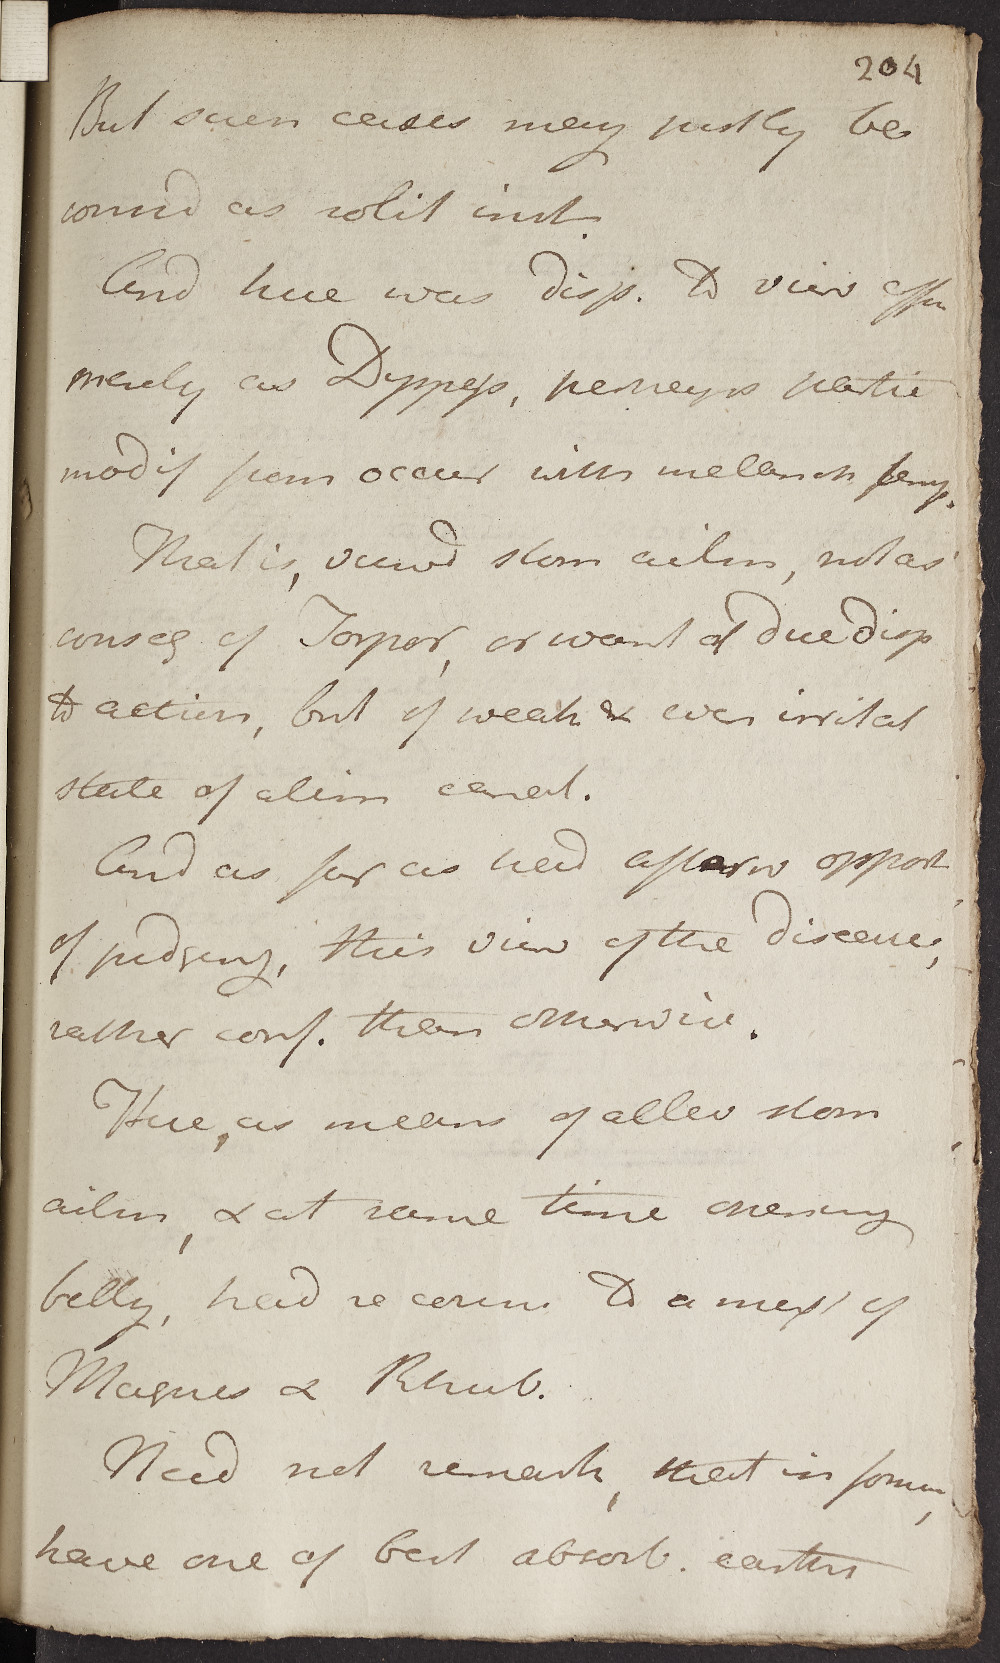 204
But such cases may justly be
considd as solit inst.
And here was disp. to view affn
merely as Dyspeps, perhaps partic
modif from occurr with melanch temp.
That is, viewd stom ailm, not as
conseq of Torpor, or want of due disp
to action, but of weak & even irritat
state of alim canal.
And as far as had afterw opport
of judging, this view of the disease,
rather conf. than otherwise.
Here, as means of allev stom
ailm, & at same time opening
belly, had recours to a mixt of
Magnes & Rhub.
Need not remark, that in former,
have one of best absorb. earths